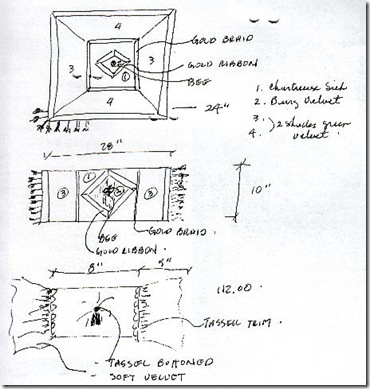 4
GOLD BRAID
3
3
GOLD RIBBON
1
BEE
4
24"
1. Chartreuse Silk
2. Burg Velvet
3.
4. ) 2 Shades green
velvet.
28"
3
1
2
3
10"
BEE
GOLD RIBBON.
GOLD BRAID.
8"
5"
112.00
TASSELL TRIM.
- TASSEL BUTTONED
- SOFT VELVET